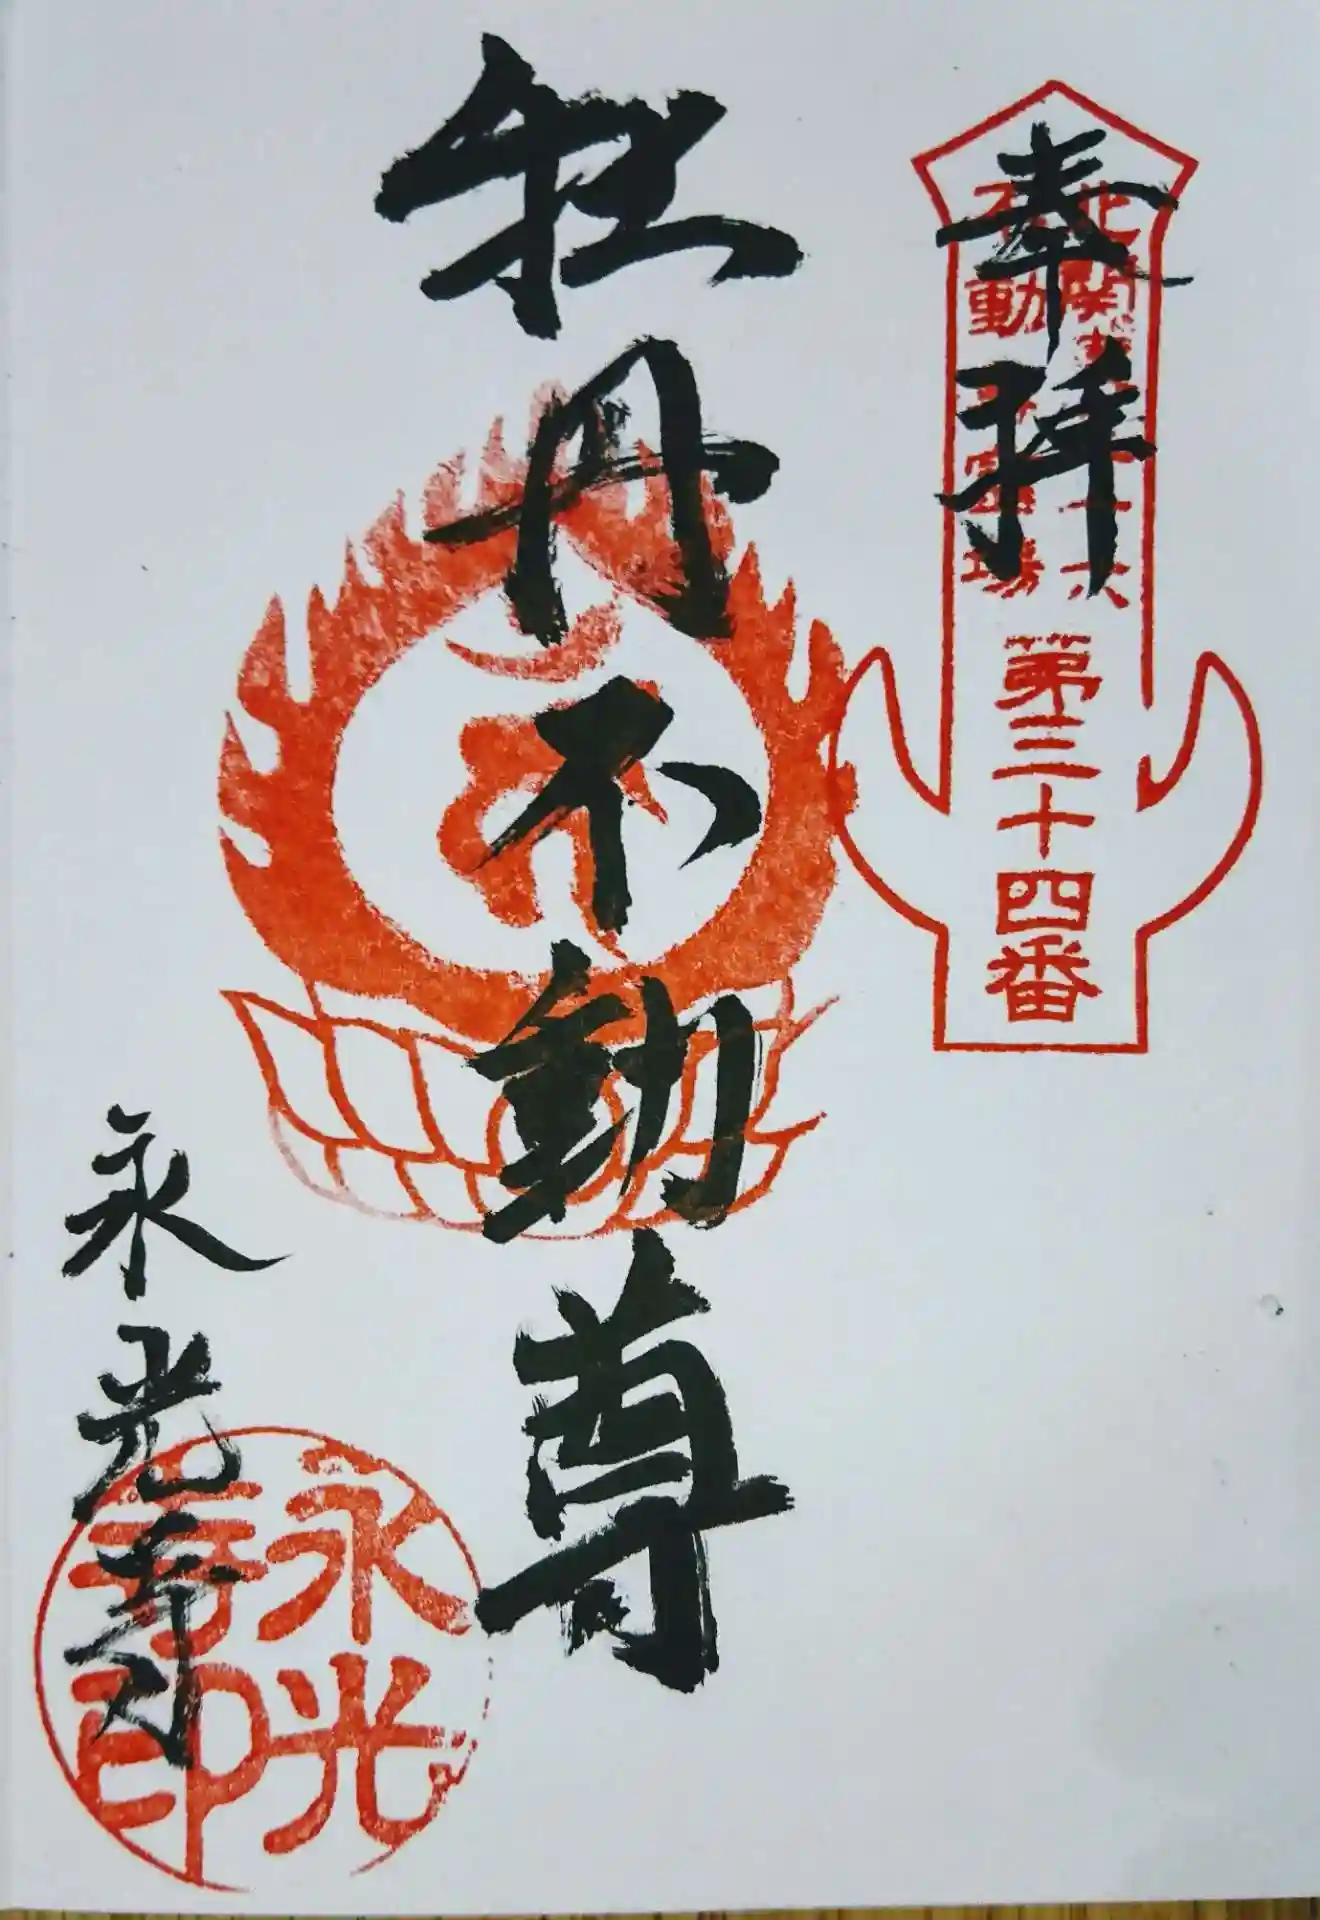 奉拝
北関東三十六
不動尊霊場
第三十四番
牡丹不動尊
永光寺
永光
寺印